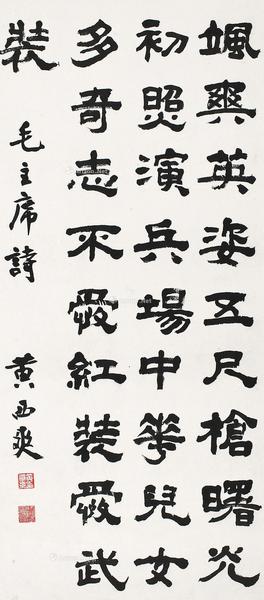 颯爽英姿五尺槍曙光
初照演兵場中華兒女
多奇志不愛紅裝愛武
裝
毛主席詩
黄西爽